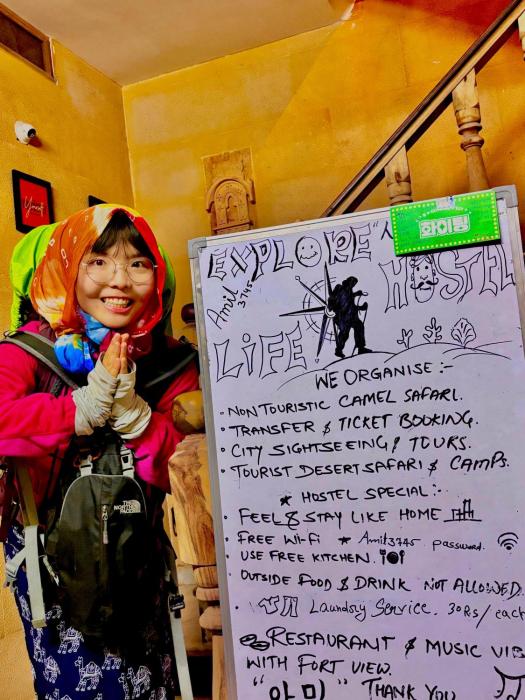 EXPLORE
HOSTEL
Amit
3745
LIFE
화이팅
WE ORGANISE :-
• NON TOURISTIC CAMEL SAFARI.
• TRANSFER & TICKET BOOKING.
• CITY SIGHTSEEING & TOURS.
• TOURIST DESERT SAFARI & CAMPS.
★ HOSTEL SPECIAL :-
• FEEL & STAY LIKE HOME
• FREE Wi-Fi ★ Amit3745 password.
• USE FREE KITCHEN.
OUTSIDE FOOD & DRINK NOT ALLOWED.
• Laundry Service. 30Rs/each
RESTAURANT & MUSIC VIB
WITH FORT VIEW.
THANK YOU
THE
NORTH
FACE